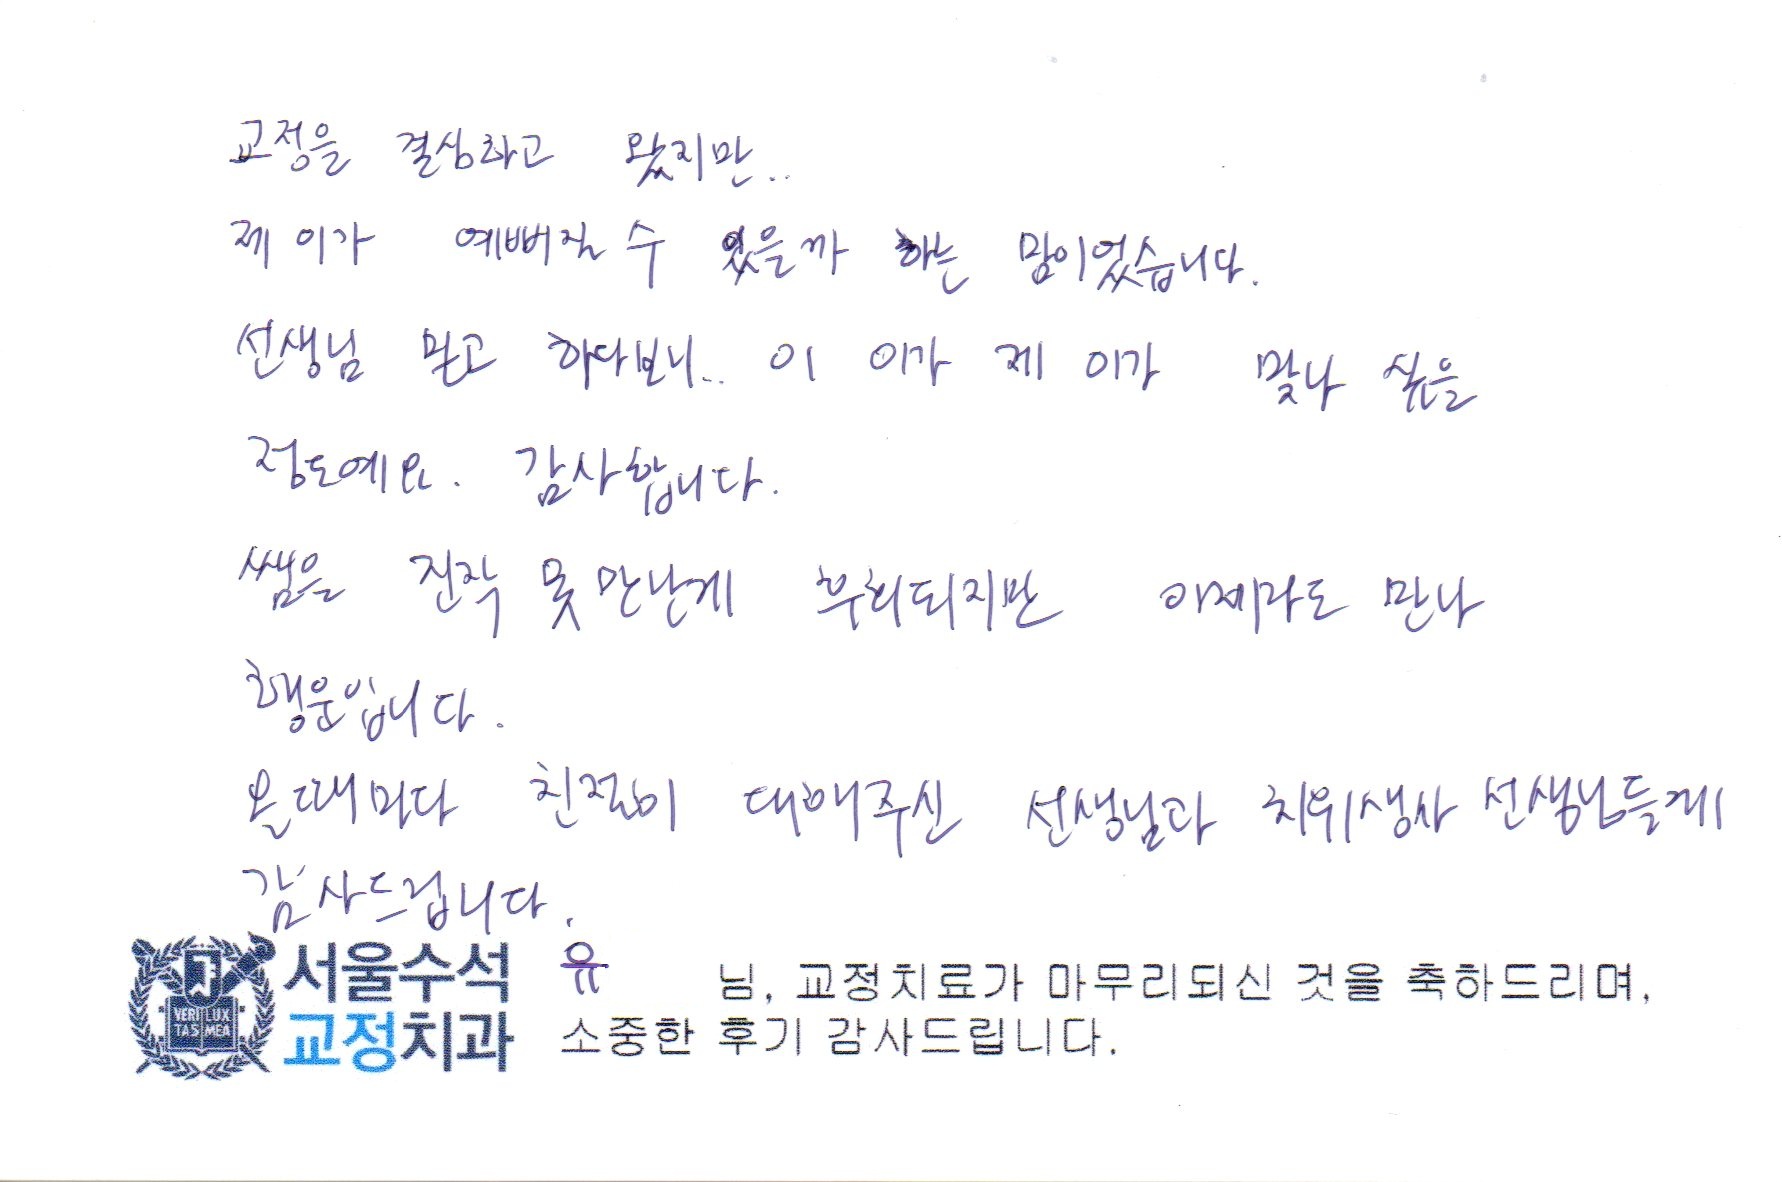 교정을 결심하고 왔지만..
제 이가 예뻐질 수 있을까 하는 맘이었습니다.
선생님 믿고 하다보니.. 이 이가 제 이가 맞나 싶을
정도예요. 감사합니다.
쌤을 진작 못 만난게 후회되지만 이제라도 만나
행운입니다.
올때마다 친절히 대해주신 선생님과 치위생사 선생님들께
감사드립니다.
서울수석
교정치과
VERI LUX
TAS MEA
유 님, 교정치료가 마무리되신 것을 축하드리며,
소중한 후기 감사드립니다.